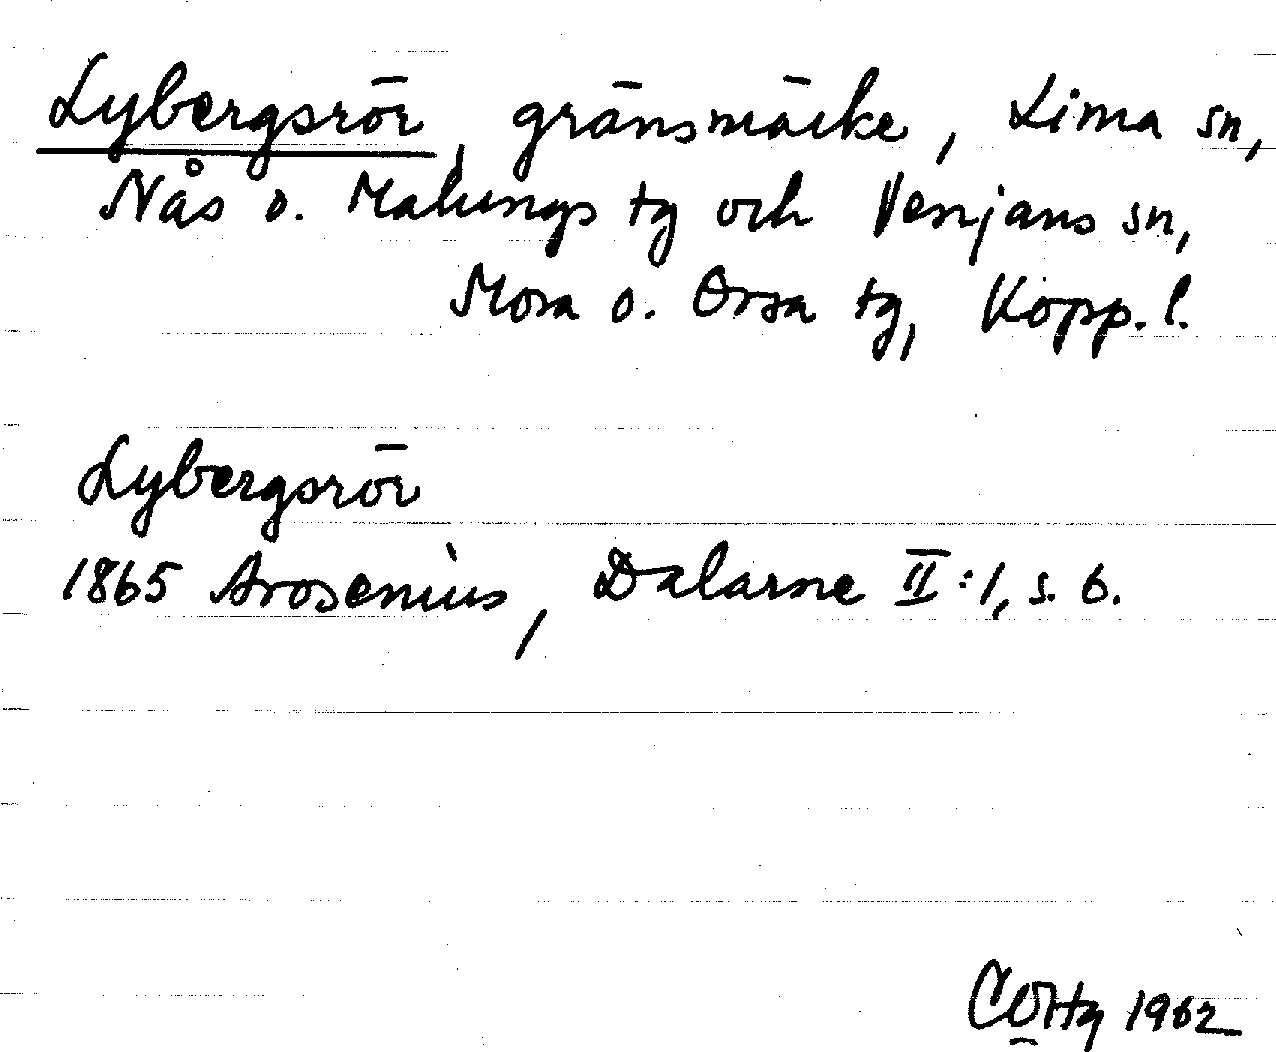 Lybergsrör, gränsmärke, Lima sn,
Nås o. Malungs tg och Venjans sn,
Mora o. Orsa tg, Kopp. l.
Lybergsrör
1865 Arosenius, Dalarne II:1, s. 6.
1962